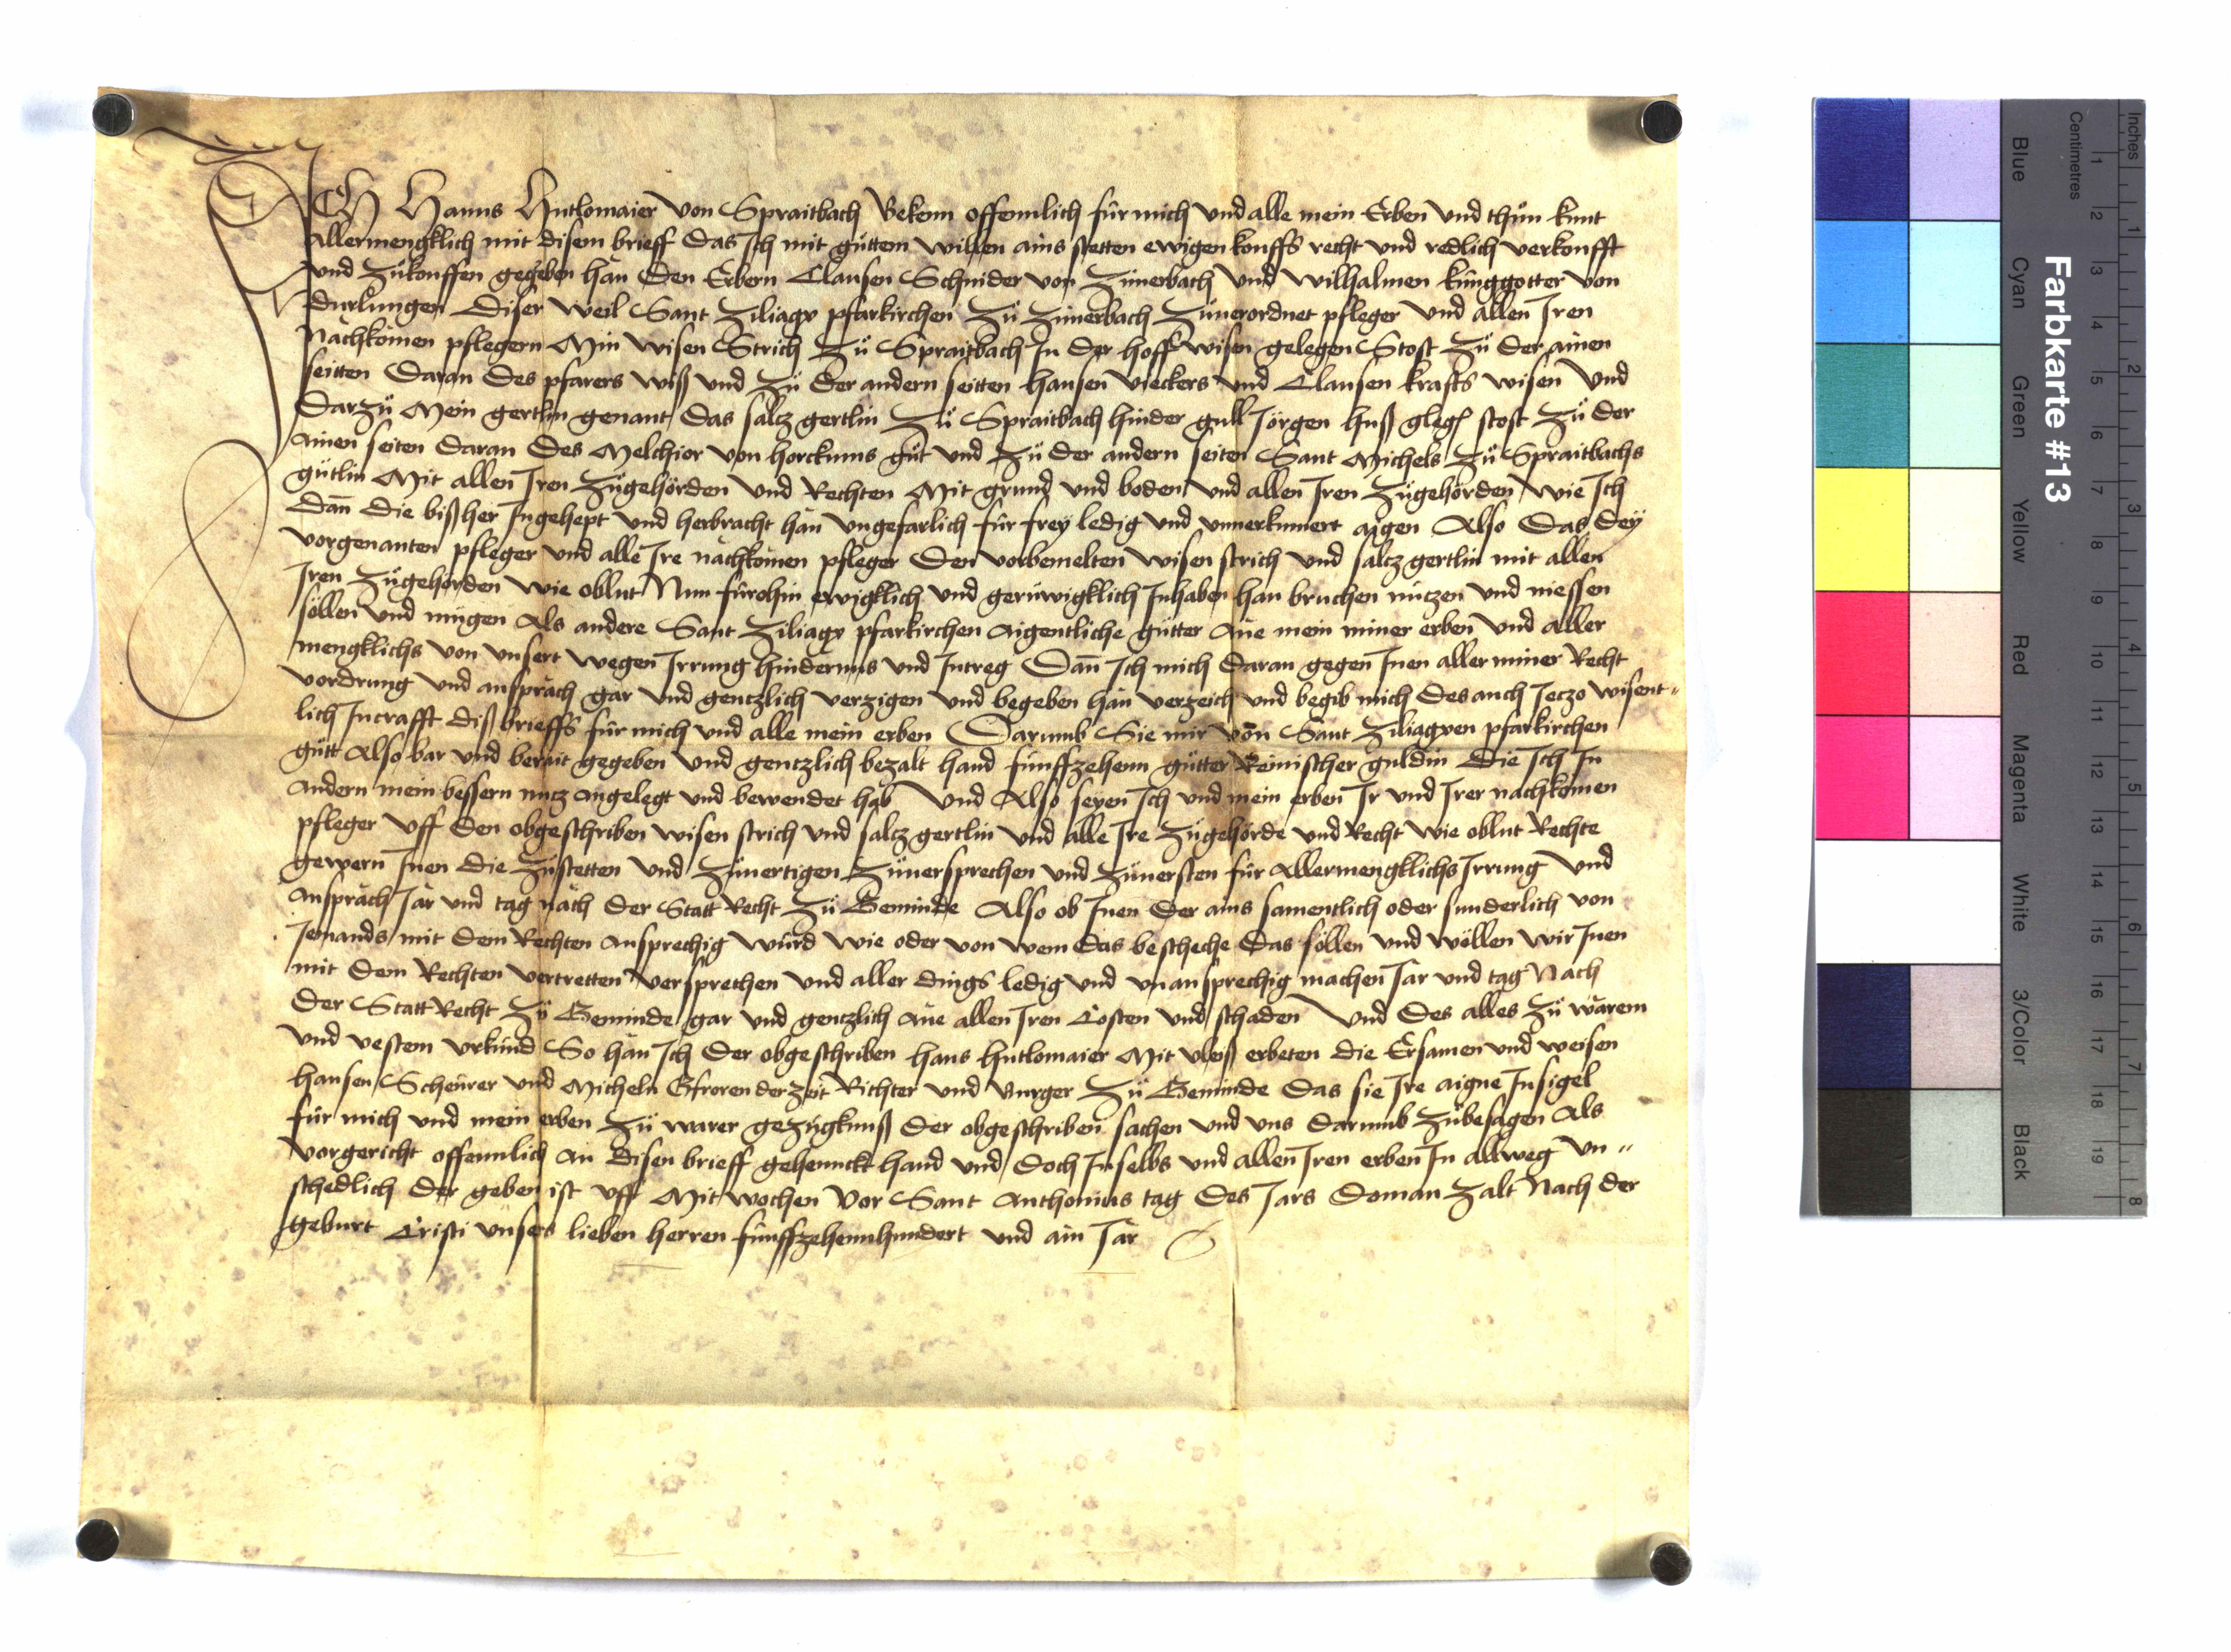 ICH Hanns Hutlomaier von Spraitbach Bekenn offennlich für mich und alle mein Erben und thün kunt
Allermengklich mit disem brieff das Ich mit güttem willen ains stetten ewigen kouffs recht und redlich verkoufft
und zükouffen gegeben hän den Erbern Clausen Schnider von Zimerbach und Wilhalmen künggotter von
durlungen diser weil Sant Ziliagx pfarkirchen Zü Zimerbach Züuerordnet pfleger und allen Iren
Nächkomen pflegern Min wisen Strich Zü Spraitbach In der hoff wisen gelegen Stost Zü der ainen
seitten daran des pfarers wiß und Zü der andern seitten hansen vieckers und Clausen krafts wisen und
darzü Mein gertlin genant das saltz gertlin Zü Spraitbach hinder gull Jörgen huß gleg stost Zü der
ainen seiten daran des Melchior von horckums güt und Zü der andern seiten Sant Michels Zü Spraitbachs
gütlin Mit allen Iren Zügehörden und Rechten Mit grund und boden und allen Iren Zügehörden wie Ich
dañ die bißher Ingehept und herbracht hän ungefarlich für frey ledig und unuerkumert aigen Also das dey
vorgenanten pfleger und alle Ire nächkomen pfleger den vorbemelten wisen strich und saltz gertlin mit allen
Iren Zügehörden wie oblut Nun fürohin ewigklich und gerüwigklich Inhaben han bruchen nutzen und niessen
söllen und mügen Als andere Sant Ziliagx pfarkirchen aigentliche gütter äne mein miner erben und aller
mengklichs von unsert wegen Irrung hindernus und Intreg Dañ Ich mich daran gegen Inen aller miner Recht
vordrung und anspräch gar und gentzlich verzigen und begeben hän verzeich und begib mich des auch Ietzo wisent„
lich Incrafft diß brieffs für mich und alle mein erben Darumb Sie mir von Sant Ziliagxen pfarkirchen
gütt Also bar und berait gegeben und gentzlich bezalt hand fünffzehenn gütter Reinischer guldin die Ich In
andern mein bessern nutz angelegt und bewendet hab Und Also seyen Ich und mein erben Ir und Irer nachkomen
pfleger uff den obgeschriben wisen strich und saltz gertlin und alle Ire Zügehörde und Recht wie oblut Rechte
gewern Inen die Züstetten und Züuertigen Züuersprechen und Züuersten für Allermengklichs Irrung und
Anspräch Jär und tag näch der Statt Recht Zü Gemünde Also ob Inen der ains samentlich oder sunderlich von
Iemands mit dem Rechten ansprechig würd wie oder von wem das bescheche das söllen und wöllen wir Inen
mit dem Rechten vertretten versprechen und aller dings ledig und unansprechig machen Jär und tag Nach
der Statt Recht Zü Gemünde gar und gentzlich äne allen Iren Costen und schaden Und des alles Zü warem
und vestem urkünd So hän Ich der obgeschriben hans hutlomaier Mit vleiß erbeten die Ersamen und weisen
hansen Scheürer und Micheln Gfroren der Zeit Richter und Burger Zü Gemünde das sie Ire aigne Insigel
für mich und mein erben Zü warer gezügknuß der obgeschriben sachen und uns darumb Zübesagen Als
vorgericht offennlich an disen brieff gehennckt hand und doch Inselbs und allen Iren erben In allweg Un„
schedlich der geben ist uff Mitwochen vor Sant Anthonius tag des Jars doman Zalt Nach der
geburt Cristi unsers lieben herren fünffzehennhundert und ain Jar
Farbkarte #13
Inches
Centimetres
1 2 3 4 5 6 7 8 9 10 11 12 13 14 15 16 17 18 19
1 2 3 4 5 6 7 8
Blue Cyan Green Yellow Red Magenta White 3/Color Black